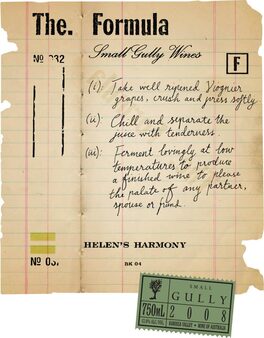 The. Formula
Small Gully Wines
Nº 032
F
(i): Take well ripened Viognier
grapes, crush and press softly
(ii): Chill and separate the
juice with tenderness.
(iii): Ferment lovingly at low
temperatures to produce
a finished wine to please
the palate of any partner,
spouse or friend.
HELEN'S HARMONY
Nº 03
BK 04
SMALL
GULLY
750ML
2008
BAROSSA VALLEY WINE OF AUSTRALIA